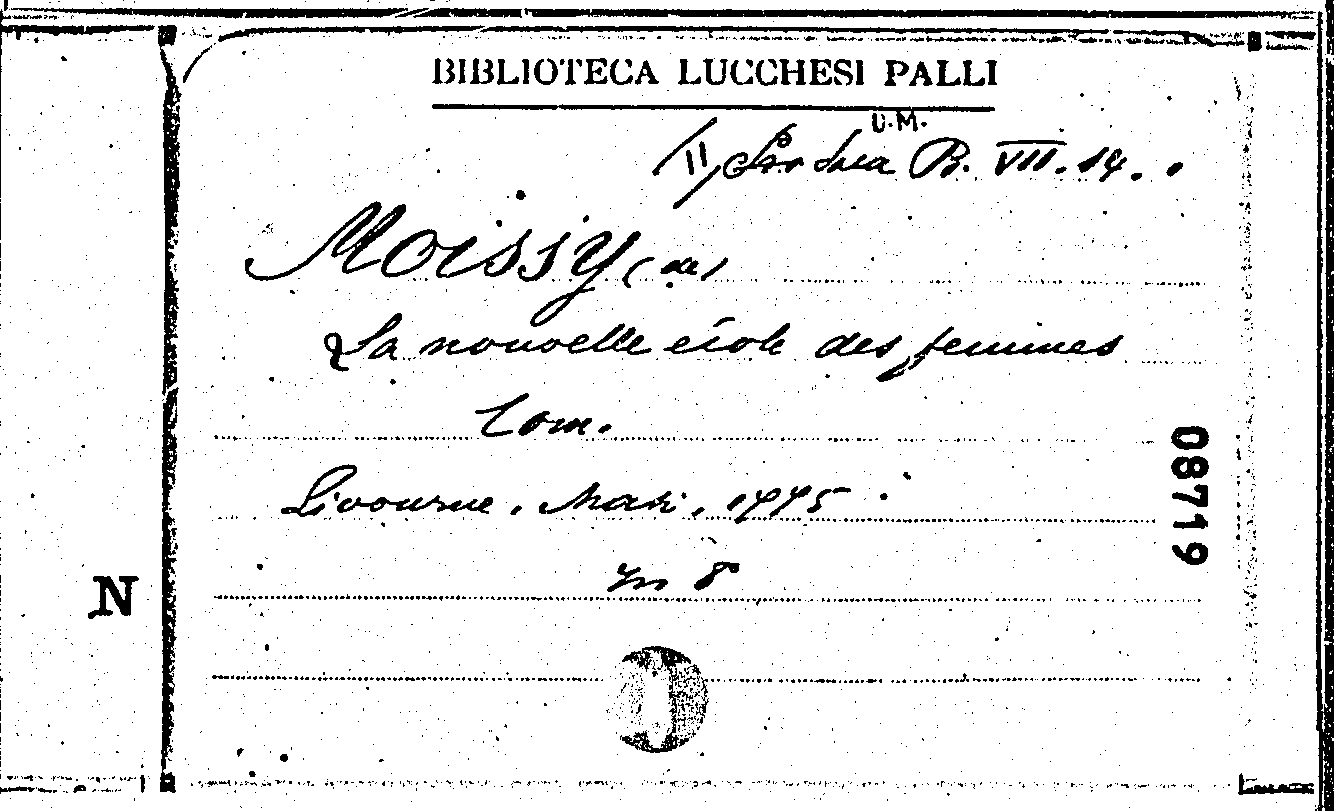 BIBLIOTECA LUCCHESI PALLI
U.M.
B. VII. 14.
Moissy (de)
La nouvelle école des femmes
Com.
Livourne. Masi. 1775
08719
In 8º
N